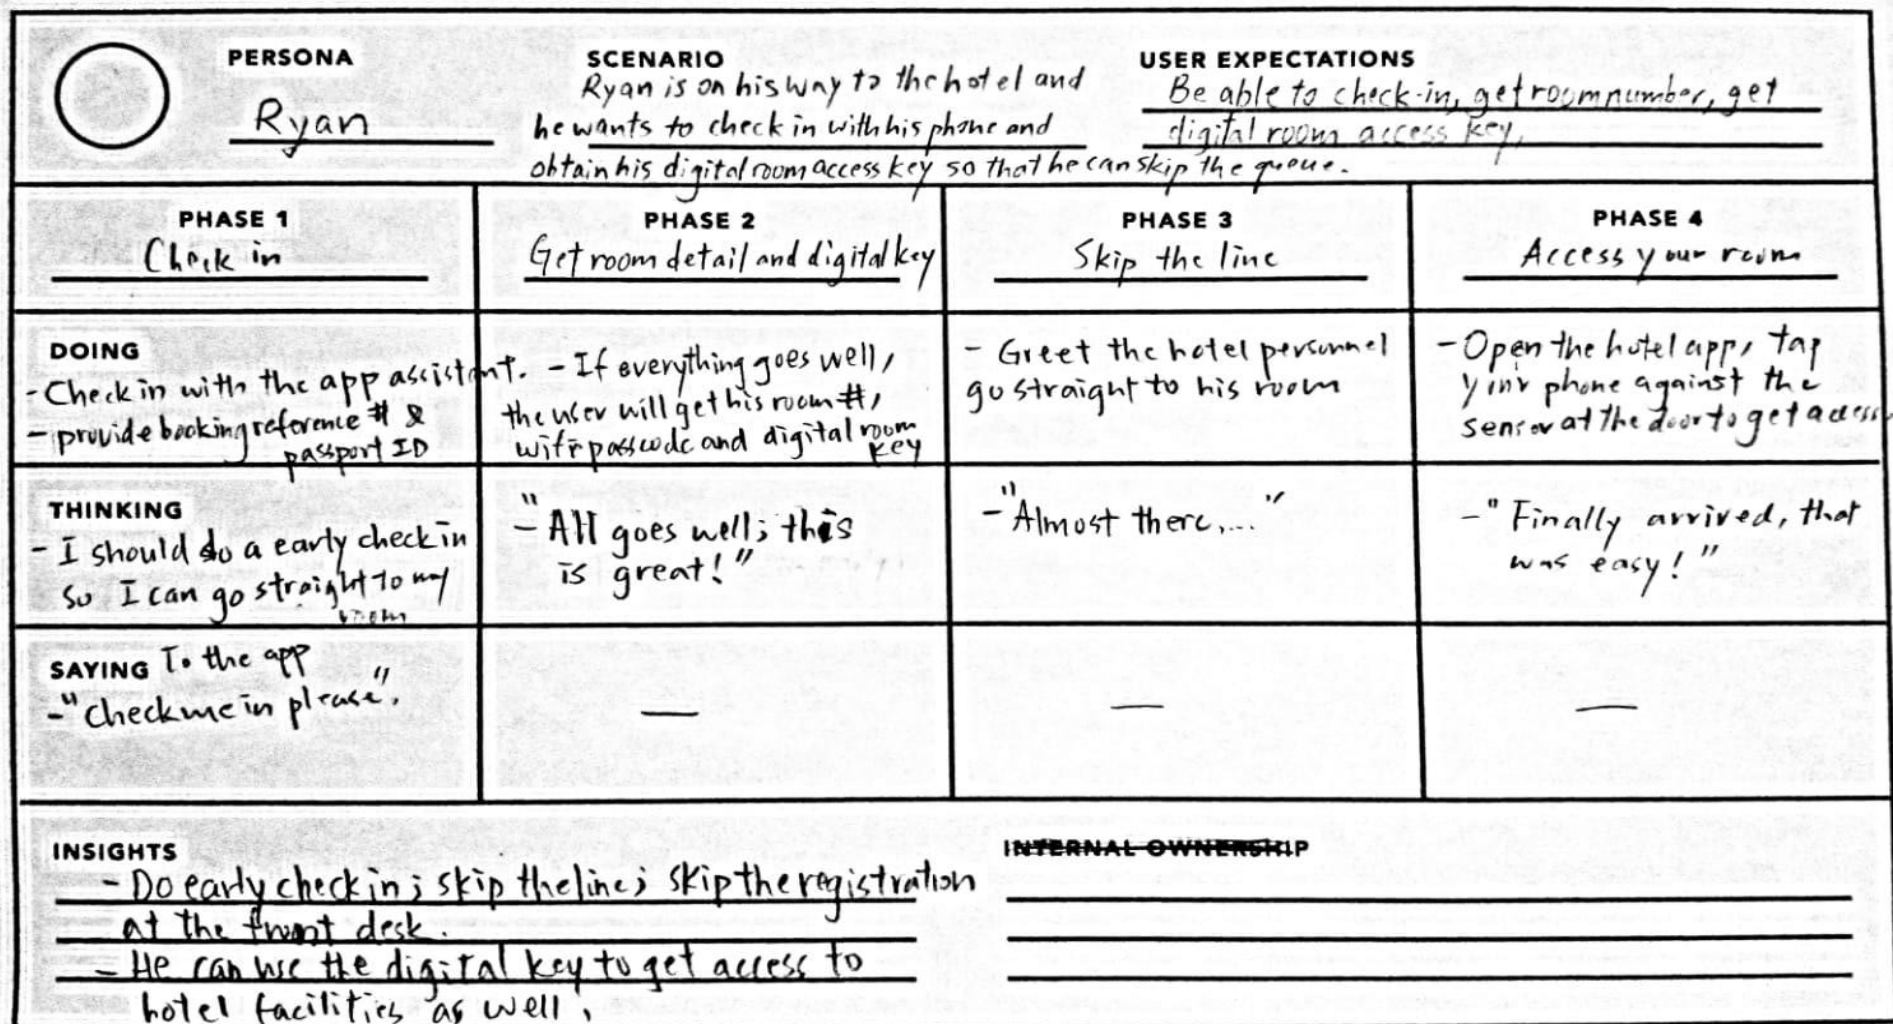 PERSONA
Ryan
SCENARIO
Ryan is on his way to the hotel and
he wants to check in with his phone and
obtain his digital room access key so that he can skip the queue.
USER EXPECTATIONS
Be able to check-in, get room number, get
digital room access key,
PHASE 1
Check in
PHASE 2
Get room detail and digital key
PHASE 3
Skip the line
PHASE 4
Access your room
DOING
- Check in with the app assistant.
- provide booking reference # &
passport ID
- If everything goes well,
the user will get his room #,
wifi passcode and digital room
key
- Greet the hotel personnel
go straight to his room
- Open the hotel app, tap
your phone against the
sensor at the door to get access.
THINKING
- I should do a early check in
so I can go straight to my
room
- "All goes well; this
is great!"
- "Almost there...."
- "Finally arrived, that
was easy!"
SAYING To the app
- "Check me in please."
—
—
—
INSIGHTS
- Do early check in; skip the line; skip the registration
at the front desk.
- He can use the digital key to get access to
hotel facilities as well.
INTERNAL OWNERSHIP